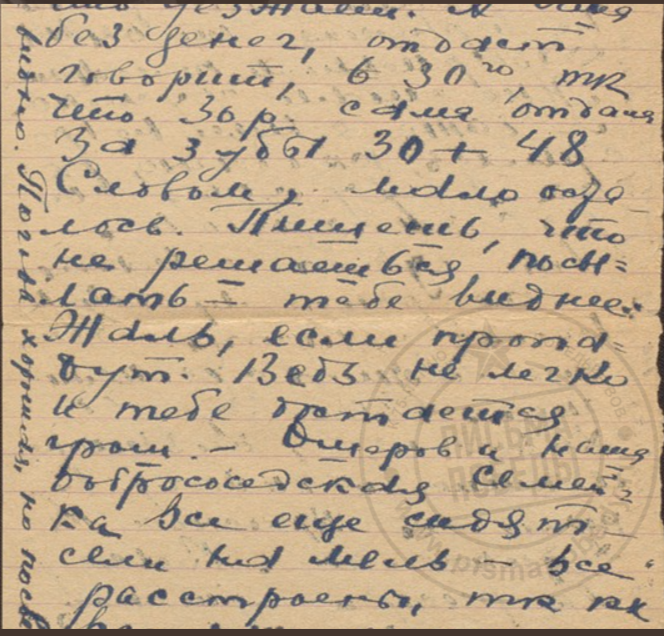 без денег, отдаст
говорит, в 30 го, тк
что 30 р. сама отдала
За зубы 30 + 48
Словом, мало оста
лось Пишешь, что
не решаешься, посы=
лать – тебе виднее.
Жаль, если пропа=
дут. Ведь не легко
и тебе достаются
гроши. – и наша
добрососедская Семей
ка все еще сидят –
сели на мель – все
расстроены, тк их
видно. Погода хорошая, но
ПИСЬМА
ПОБЕДЫ
www.pisma